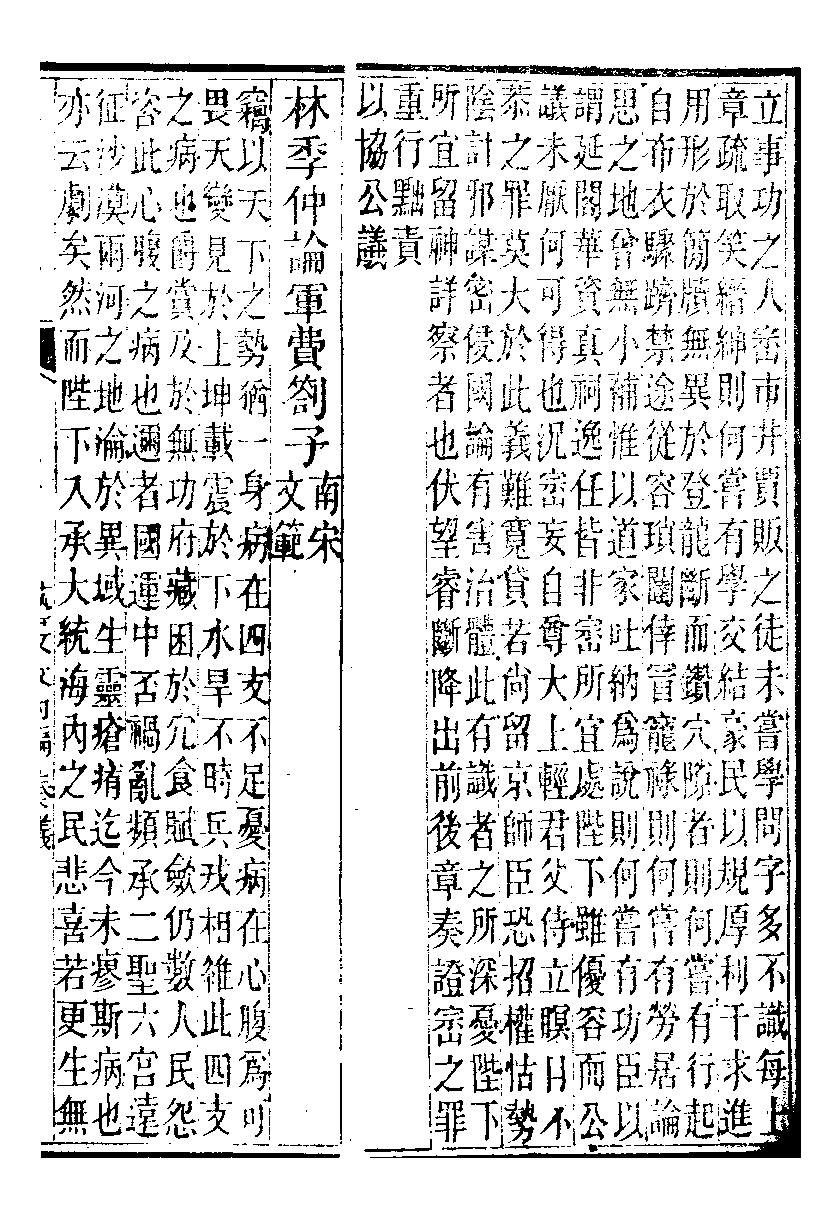 立事功之人崈市井賈販之徒未嘗學問字多不識每上
章疏取笑縉紳則何嘗有學交結豪民以規厚利干求進
用形於簡牘無異於登龍斷而鑽穴隙者則何嘗有行起
自布衣驟躋禁途從容瑣闥倖冒寵祿則何嘗有勞居論
思之地曾無小補惟以道家吐納爲說則何嘗有功臣以
謂延閣華資真祠逸任皆非崈所宜處陛下雖優容而公
議未厭何可得也況崈妄自尊大上輕君父侍立瞑目不
恭之罪莫大於此義難寬貸若尚留京師臣恐招權怙勢
陰計邪謀密侵國論有害治體此有識者之所深憂陛下
所宜留神詳察者也伏望睿斷降出前後章奏證崈之罪
重行黜責
以協公議
林季仲論軍費劄子南宋文範
竊以天下之勢猶一身病在四支不足憂病在心腹爲可
畏天變見於上坤載震於下水旱不時兵戎相雒此四支
之病也爵賞及於無功府藏困於冗食賦斂仍數人民怨
咨此心腹之病也邇者國運中否禍亂頻承二聖六宮遠
征沙漠兩河之地淪於異域生靈瘡痏迄今未瘳斯病也
亦云劇矣然而陛下入承大統海內之民悲喜若更生無